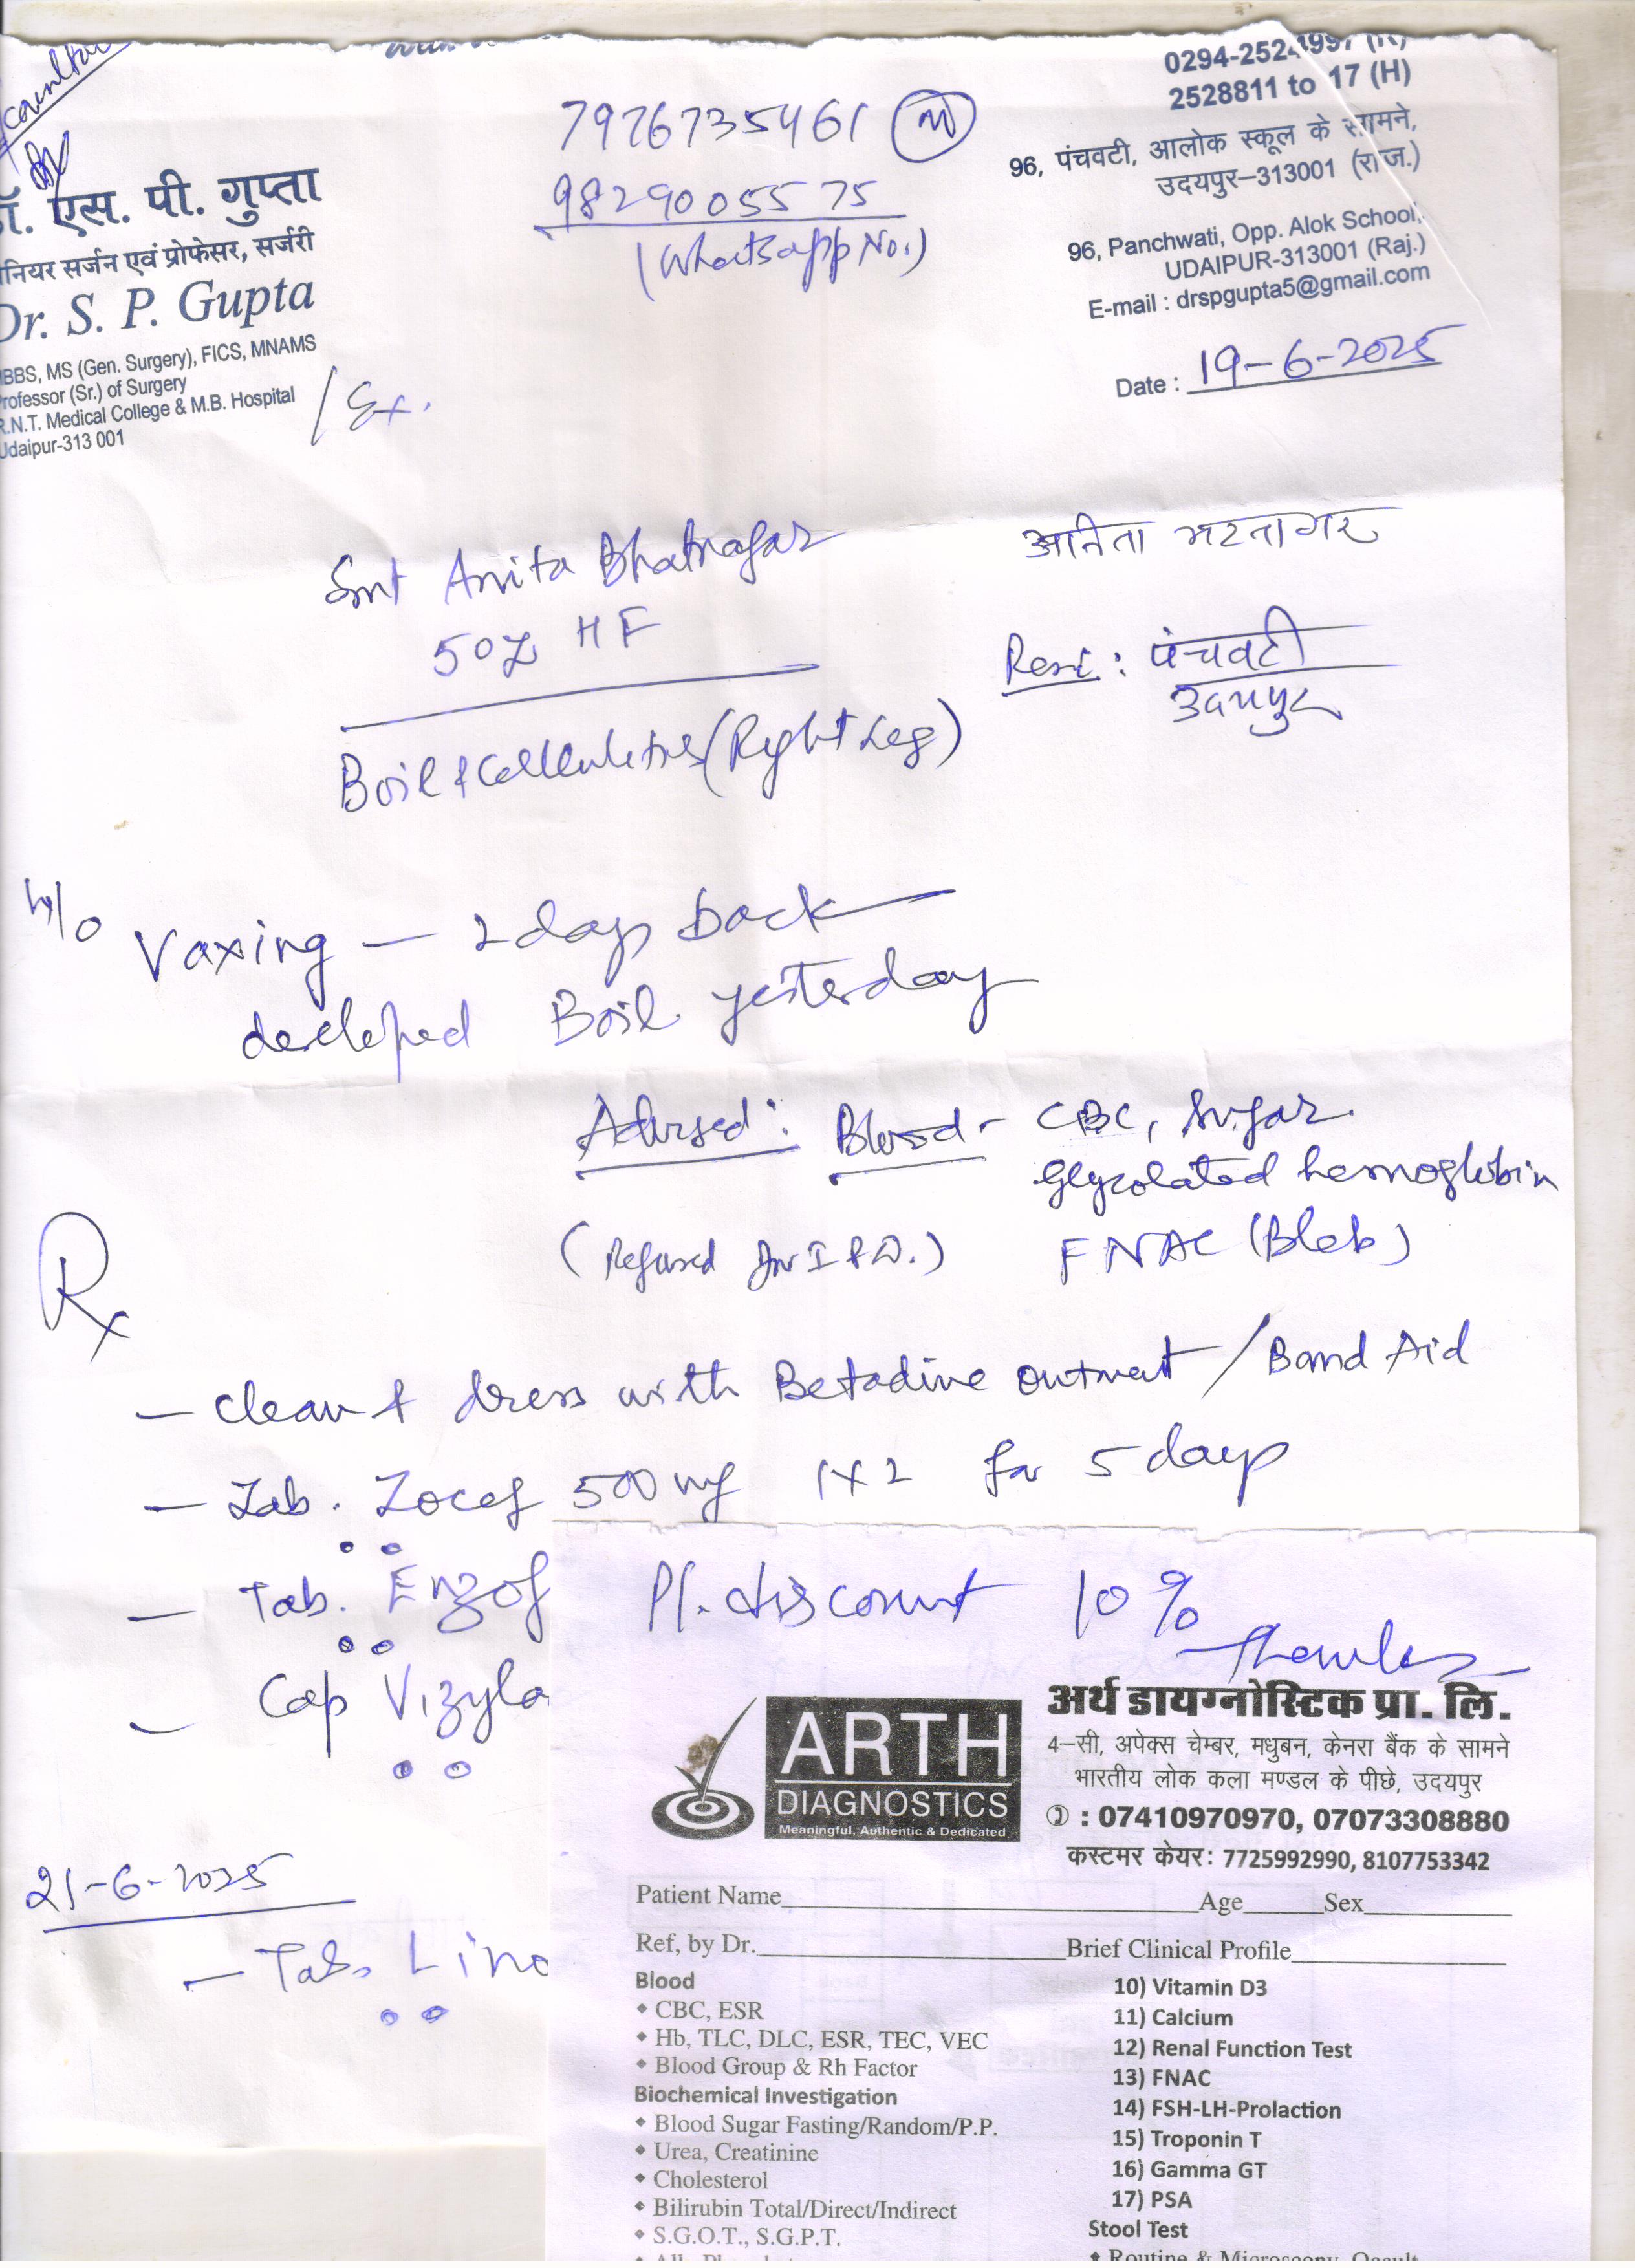 0294-2524997 (R)
2528811 to 17 (H)
96, पंचवटी, आलोक स्कूल के सामने,
उदयपुर–313001 (राज.)
96, Panchwati, Opp. Alok School,
UDAIPUR-313001 (Raj.)
E-mail : drspgupta5@gmail.com
Date : 19-6-2025
7976735461 (M)
9829005575
(Whatsapp No.)
एस. पी. गुप्ता
नियर सर्जन एवं प्रोफेसर, सर्जरी
Dr. S. P. Gupta
BBS, MS (Gen. Surgery), FICS, MNAMS
rofessor (Sr.) of Surgery
R.N.T. Medical College & M.B. Hospital
Udaipur-313 001
/ Ex.
Smt Anita Bhatnagar
अनिता भटनागर
50y HF
Resi: पंचवटी
उदयपुर
Boil & Cellulitis (Right Leg)
H/o Vaxing — 2 days back
developed Boil yesterday
Advised: Blood - CBC, Sugar.
Glycolated hemoglobin
(Refused for I & D.) FNAC (Bleb)
Rx
— Clean & dress with Betadine Ointment / Band Aid
— Tab. Zocef 500mg 1x2 for 5 days
— Tab. Enzof
— Cap Vizyla
21-6-2025
— Tab. Lino
Pl. discount 10%
Thanks
ARTH
DIAGNOSTICS
Meaningful, Authentic & Dedicated
अर्थ डायग्नोस्टिक प्रा. लि.
4–सी, अपेक्स चेम्बर, मधुबन, केनरा बैंक के सामने
भारतीय लोक कला मण्डल के पीछे, उदयपुर
: 07410970970, 07073308880
कस्टमर केयर: 7725992990, 8107753342
Patient Name Age Sex
Ref, by Dr. Brief Clinical Profile
Blood
CBC, ESR
Hb, TLC, DLC, ESR, TEC, VEC
Blood Group & Rh Factor
Biochemical Investigation
Blood Sugar Fasting/Random/P.P.
Urea, Creatinine
Cholesterol
Bilirubin Total/Direct/Indirect
S.G.O.T., S.G.P.T.
10) Vitamin D3
11) Calcium
12) Renal Function Test
13) FNAC
14) FSH-LH-Prolaction
15) Troponin T
16) Gamma GT
17) PSA
Stool Test
Routine & Microscopy, Occult